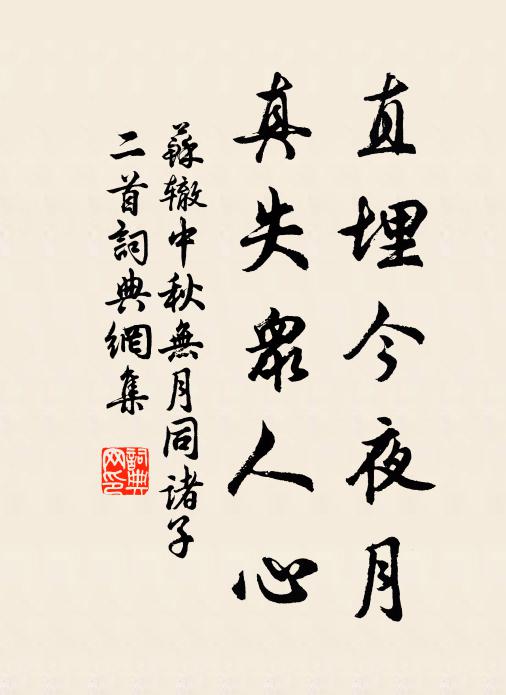 直埋今夜月
真失衆人心
蘇辙中秋無月同諸子
二首詞典網集
詞典
网印